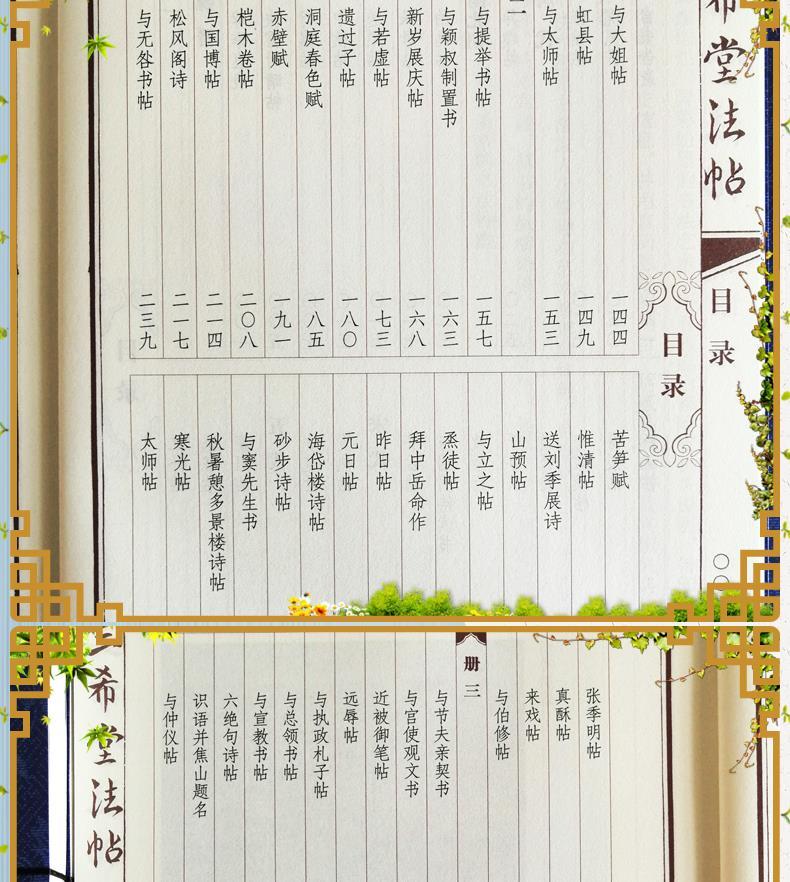 希堂法帖
目录
目录
与大姐帖 一四四
虹县帖 一四九
与太师帖 一五三
二
与提举书帖 一五七
与颖叔制置书 一六三
新岁展庆帖 一六八
与若虚帖 一七三
遗过子帖 一八〇
洞庭春色赋 一八五
赤壁赋 一九一
桤木卷帖 二〇八
与国博帖 二一四
松风阁诗 二一七
与无咎书帖 二三九
苦笋赋
惟清帖
送刘季展诗
山预帖
与立之帖
烝徒帖
拜中岳命作
昨日帖
元日帖
海岱楼诗帖
砂步诗帖
与窦先生书
秋暑憩多景楼诗帖
寒光帖
太师帖
〇〇
张季明帖
真酥帖
来戏帖
与伯修帖
册三
与节夫亲契书
与官使观文书
近被御笔帖
远辱帖
与执政札子帖
与总领书帖
与宣教书帖
六绝句诗帖
识语并焦山题名
与仲仪帖
希堂法帖